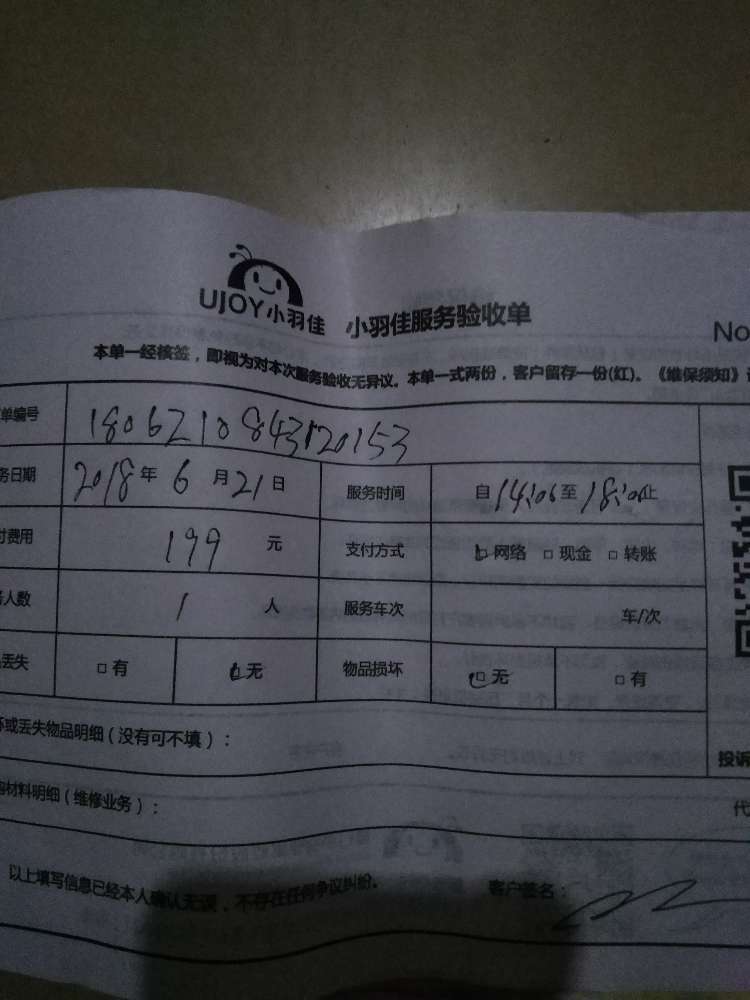 UJOY小羽佳 小羽佳服务验收单
No
本单一经核签，即视为对本次服务验收无异议。本单一式两份，客户留存一份(红)。《维保须知》
单编号 1806210843120153
务日期 2018年 6月21日 服务时间 自14:06至18:06止
付费用 199 元 支付方式 □网络 □现金 □转账
人数 1 人 服务车次 车/次
丢失 □有 □无 物品损坏 □无 □有
坏或丢失物品明细（没有可不填）：
投诉
材料明细（维修业务）：
代
以上填写信息已经本人确认无误，不存在任何争议纠纷。 客户签名：